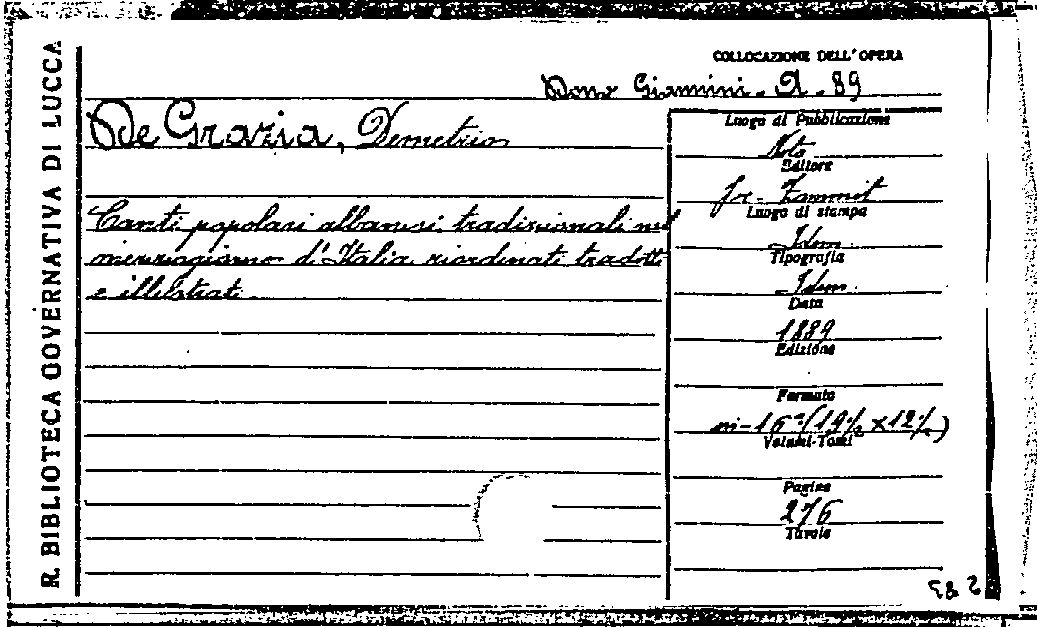 R. BIBLIOTECA GOVERNATIVA DI LUCCA
COLLOCAZIONE DELL'OPERA
Dono Giannini - A. 89
De Grazia, Demetrio
Canti popolari albanesi tradizionali nel
mezzogiorno d'Italia riordinati tradotti
e illustrati
Luogo di Pubblicazione
Noto
Editore
Fr. Zammit
Luogo di stampa
Idem
Tipografia
Idem
Data
1889
Edizione
Formato
in-16° (19½ x 12½)
Volumi-Tomi
Pagine
276
Tavole